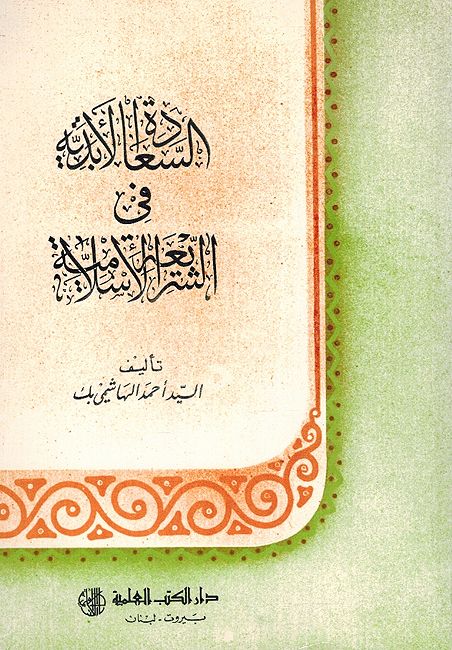 السَّعَادَة الأَبَدِيَّة
فِي
الشَّرِيعَة الإِسْلَامِيَّة
تأليف
السيد أحمد الهاشمي بك
دار الكتب العلمية
بيروت - لبنان